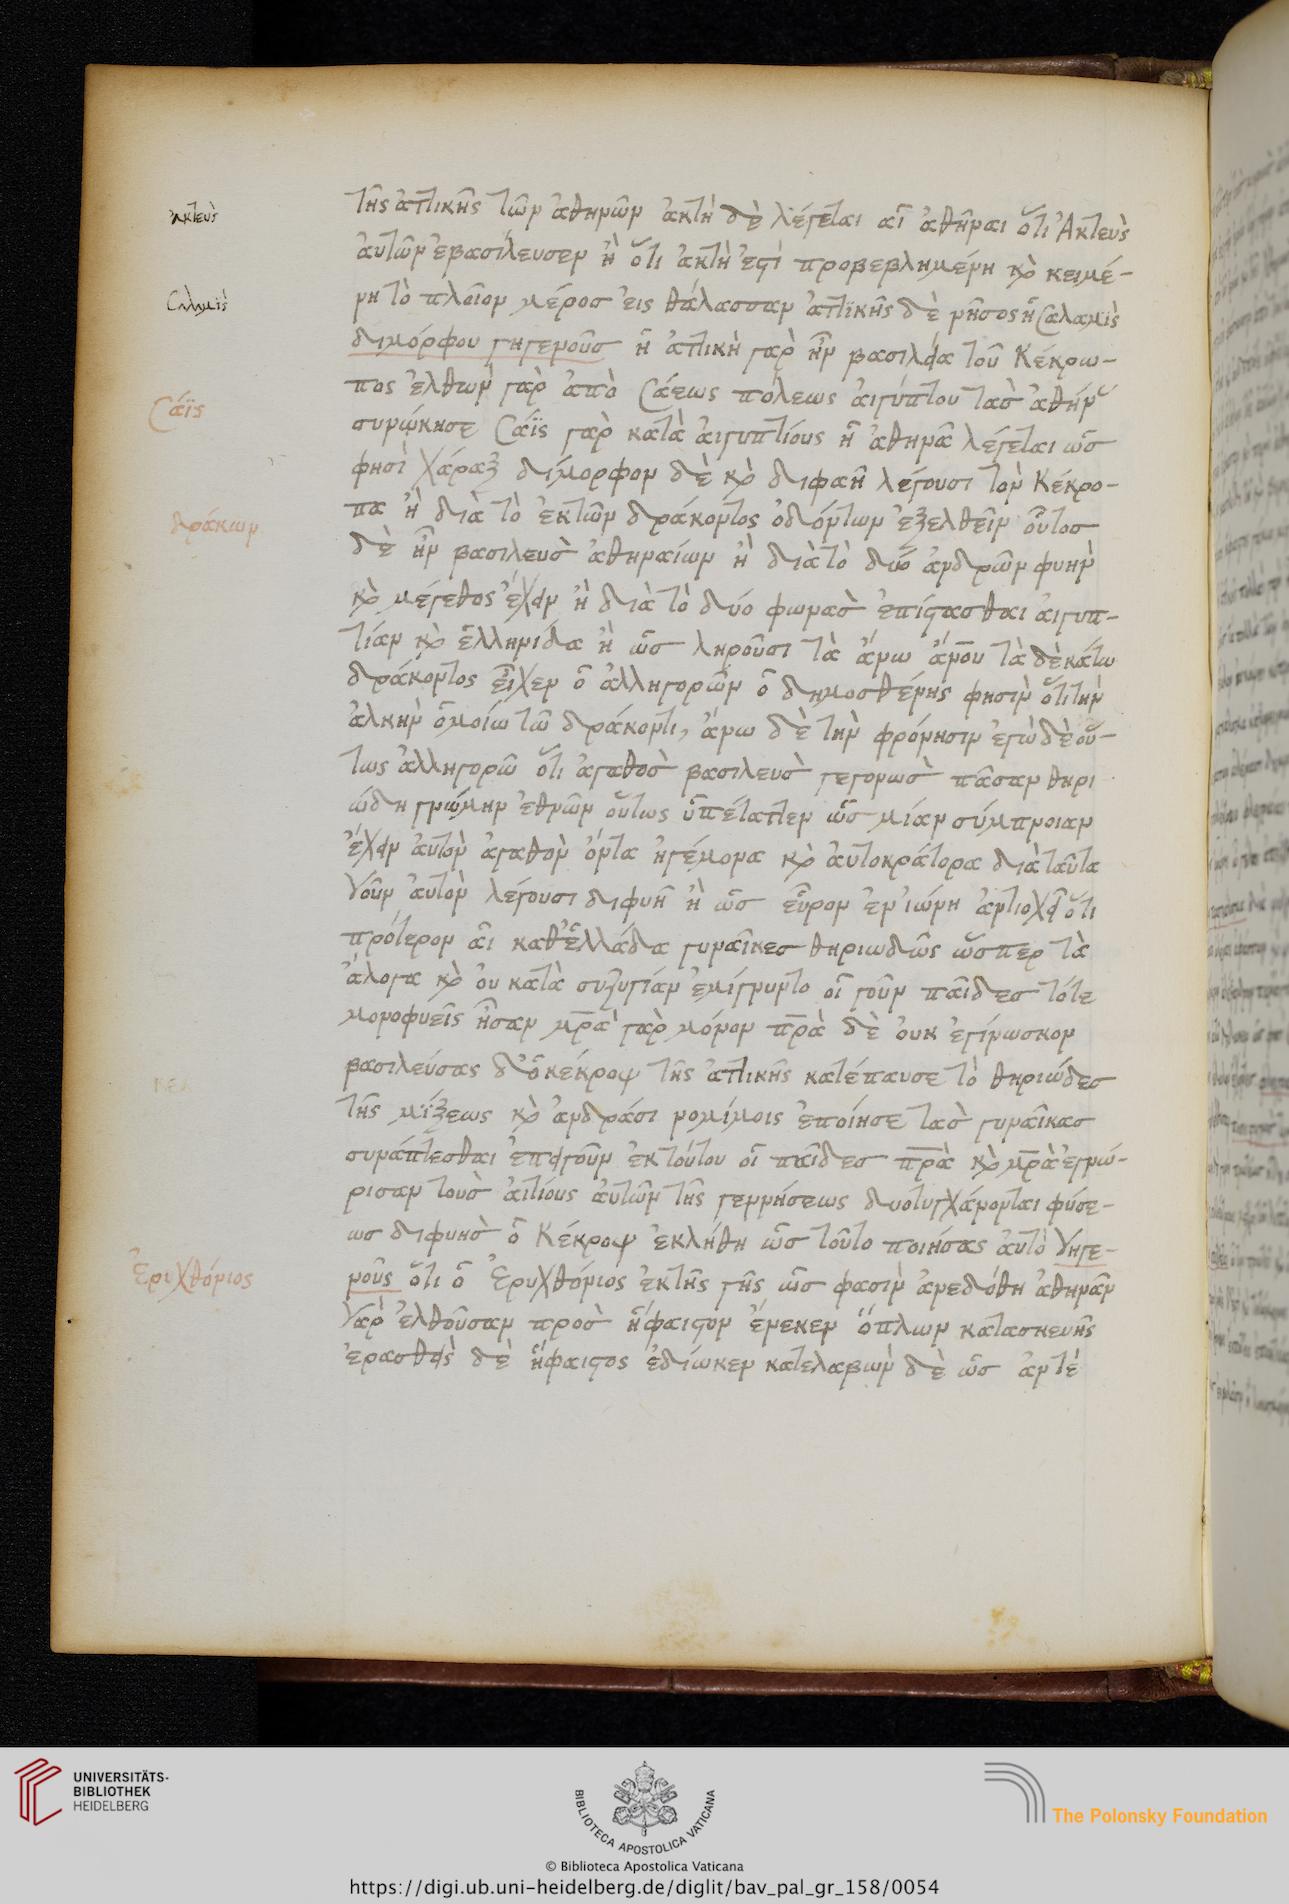 ἀκτεὺς
τῆς ἀττικῆς τῶν ἀθηνῶν ἀκτὴ δὲ λέγεται αἱ ἀθῆναι ὅτι Ἀκτεὺς
ἀυτῶν ἐβασίλευσεν ἢ ὅτι ἀκτὴ ἐστὶ προβεβλημένη κὸ κειμέ-
Σαλαμὶς
νη τὸ πλεῖον μέρος ἐις θάλασσαν ἀττικῆς δὲ νῆσος ἡ Σαλαμὶς
διμόρφου γηγενοῦς ἡ ἀττικὴ γὰρ ἦν βασιλεία τοῦ Κέκρω-
Σάϊς
πος ἐλθὼν γὰρ ἀπὸ Σάεως πόλεως ἀιγύπτου τὰσ ἀθήν
συνῴκησε Σάϊς γὰρ κατὰ ἀιγυπτίους ἡ ἀθηνᾶ λέγεται ὡσ
φησὶ χάραξ δίμορφον δὲ κὸ διφυῆ λέγουσι τὸν Κέκρο-
δράκων
πα ἢ διὰ τὸ ἐκ τῶν δράκοντος ὀδόντων ἐξελθεῖν οὗτοσ
δὲ ἦν βασιλεὺσ ἀθηναίων ἢ διὰ τὸ δύο ἀνδρῶν φυὴν
κὸ μέγεθος ἔχειν ἢ διὰ τὸ δύο φωνὰσ ἐπίστασθαι ἀιγυπ-
τίαν κὸ ἑλληνίδα ἢ ὡσ ληροῦσι τὰ ἄνω ἄνου τὰ δὲ κάτω
δράκοντος εἶχεν ὁ ἀλληγορῶν ὁ δημοσθένης φησὶν ὅτι τὴν
ἀλκὴν ὁμοίω τῶ δράκοντι, ἄνω δὲ τὴν φρόνησιν ἐγὼ δὲ οὕ-
τως ἀλληγορῶ ὅτι ἀγαθὸσ βασιλεὺσ γεγονωσ πᾶσαν θηρι
ώδη γνώμην ἐθνῶν οὕτως ὑπέταττεν ὡσ μίαν σύμπνοιαν
ἔχειν ἀυτὸν ἀγαθὸν ὄντα ἡγέμονα κὸ ἀυτοκράτορα διὰ ταῦτα
γοῦν ἀυτὸν λέγουσι διφυῆ ἢ ὡσ εὗρον ἐν ἰώνη ἀντιοχεῖ ὅτι
πρότερον αἱ καθ' ἑλλάδα γυναῖκεσ θηριωδῶς ὥσπερ τὰ
ἄλογα κὸ ὀυ κατὰ συζυγίαν ἐμίγνυντο οἱ γοῦν παῖδεσ τότε
μονοφυεῖς ἦσαν μρᾱ γὰρ μόνον πρᾱ δὲ ὀυκ ἐγίνωσκον
βασιλεύσας δ' ὁ κέκροψ τῆς ἀττικῆς κατέπαυσε τὸ θηριώδεσ
τῆς μίξεως κὸ ἀνδράσι νομίμοις ἐποίησε τὰσ γυναῖκασ
συνάπτεσθαι ἐπεὶ γοῦν ἐκ τούτου οἱ παῖδεσ πρᾱ κὸ μρᾱ ἐγνώ-
ρισαν τοὺσ ἀιτίους ἀυτῶν τῆς γεννήσεως δυο τυγχάνονται φύσε-
ωσ διφυὴσ ὁ Κέκροψ ἐκλήθη ὡσ τοῦτο ποιήσας ἀυτὸ γηγε-
Ἐριχθόνιος
νοῦς ὅτι ὁ Ἐρυχθόνιος ἐκ τῆς γῆς ὡσ φασὶν ἀνεδόθη ἀθηνᾶν
γὰρ ἐλθοῦσαν προσ ἥφαιστον ἕνεκεν ὅπλων κατασκευῆς
ἐρασθεὶς δὲ ἥφαιστος ἐδίωκεν κατελαβὼν δὲ ὡσ ἀντέ
UNIVERSITÄTS-
BIBLIOTHEK
HEIDELBERG
BIBLIOTECA APOSTOLICA VATICANA
The Polonsky Foundation
© Biblioteca Apostolica Vaticana
https://digi.ub.uni-heidelberg.de/diglit/bav_pal_gr_158/0054